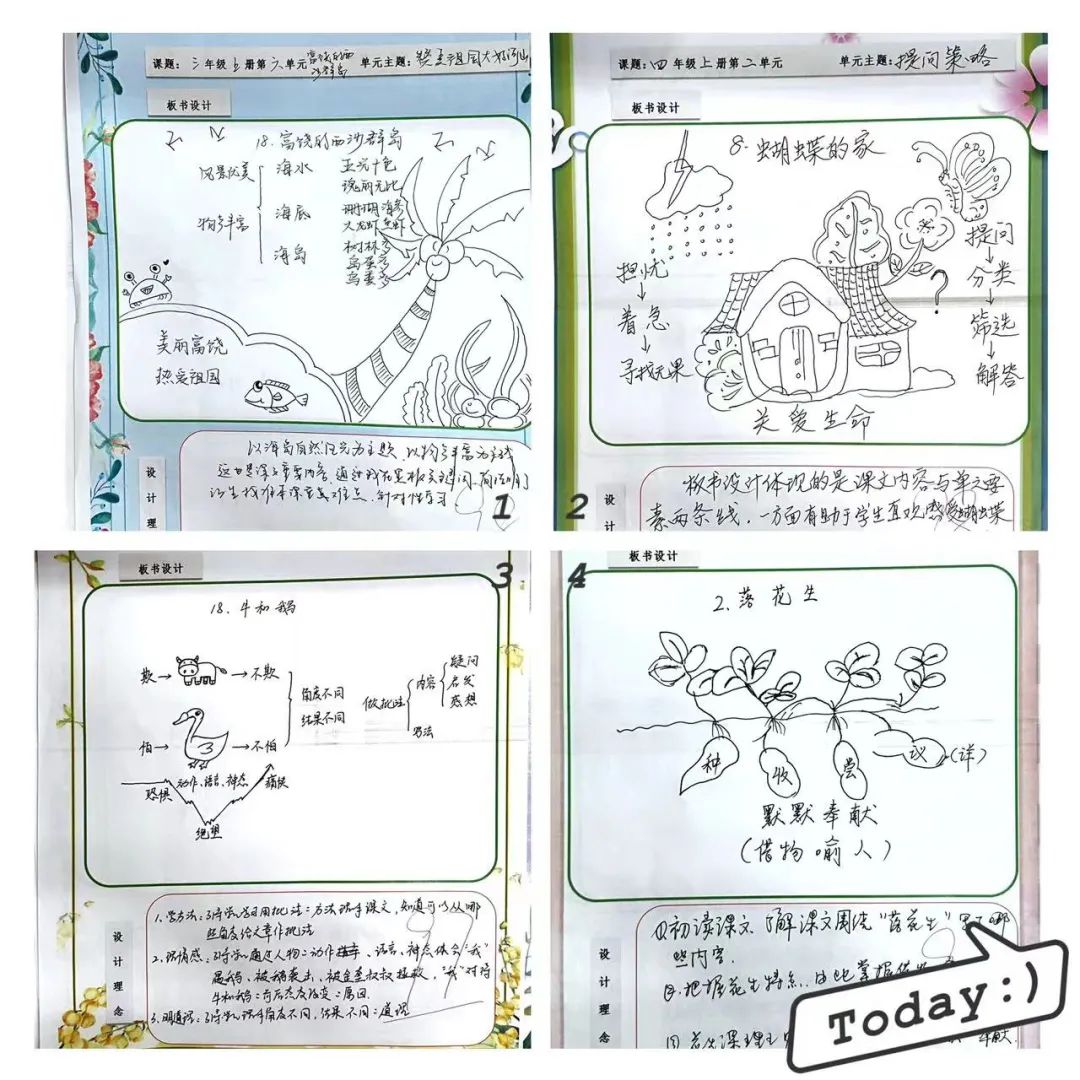 课题：三年级上册第六单元富饶的西沙群岛
单元主题：赞美祖国大好河山
板书设计
18.富饶的西沙群岛
风景优美
物产丰富
海水
五光十色
瑰丽无比
海底
珊瑚 海参
大龙虾 鱼虾
海岛
树林
鸟蛋多
鸟粪多
美丽富饶
热爱祖国
设计理
以海岛自然风光为主题，以物产丰富为主线
1
课题：四年级上册第二单元
单元主题：提问策略
板书设计
8.蝴蝶的家
担忧
着急
寻找无果
提问
分类
筛选
解答
?
关爱生命
设计
板书设计体现的是课文内容与单元要
素两条线，一方面有助于学生直观感受蝴蝶
2
3
板书设计
18.牛和鹅
欺 不欺
怕 不怕
角度不同
结果不同
做批注
内容
疑问
启发
感想
方法
恐惧
动作、语言、神态
绝望
痛快
设计理念
1.学方法：引导学生学习用批注的方法阅读课文，知道可以从哪
些角度给文章作批注
2.悟情感：引导学生通过人物的动作、语言、神态体会“我”
遇鹅、被鹅袭击、被金奎叔叔拯救，“我”对待
牛和鹅的前后态度改变的原因.
3.明道理：引导学生认识角度不同，结果不同的道理
97
4
2.落花生
种
收
尝
议
(详)
默默奉献
(借物喻人)
设计理念
①初读课文，了解课文围绕“落花生”写了哪
些内容.
②.把握花生特点，由此掌握借
Today:)